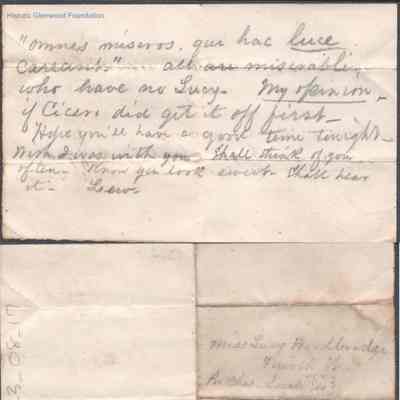 Historic Glenwood Foundation
"omnes miseros, qui hac luce
careant." all are miserable
who have no Lucy. My opinion,
if Cicero did get it off first –
Hope you'll have a good time tonight
Wish I was with you. Shall think of you
often – Know you look sweet. Shall hear
it – Love
Miss Lucy